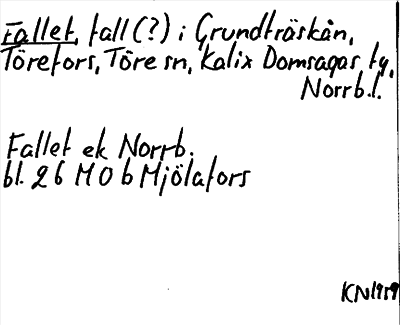 Fallet, fall (?) i Grundträskån,
Törefors, Töre sn, Kalix Domsagas tg,
Norrb. l.
Fallet ek Norrb.
bl. 26 M 0 b Mjölafors
KN 1959